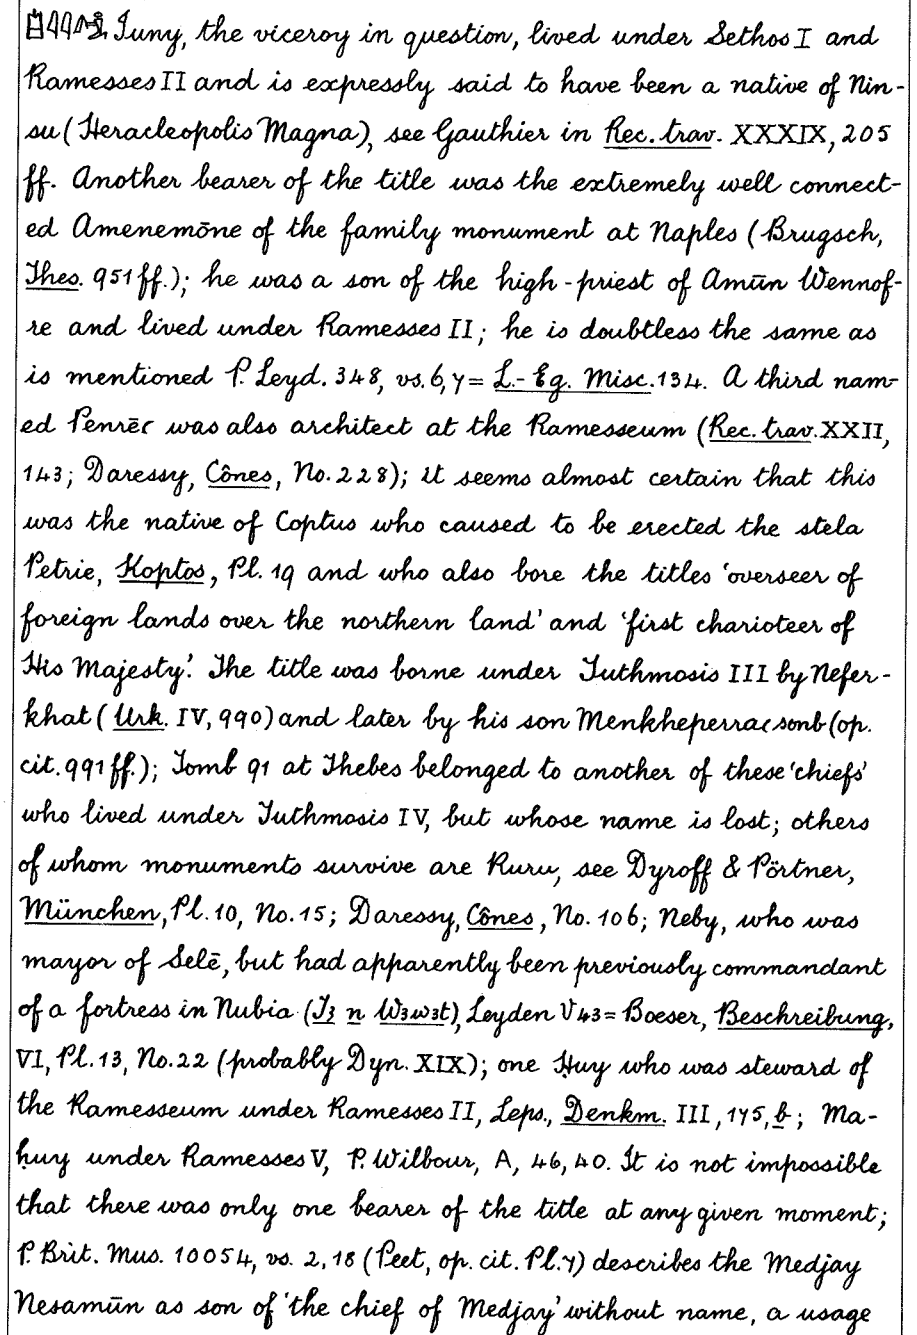 Iuny, the viceroy in question, lived under Sethos I and
Ramesses II and is expressly said to have been a native of Nin-
su (Heracleopolis Magna), see Gauthier in Rec. trav. XXXIX, 205
ff. Another bearer of the title was the extremely well connect-
ed Amenemōne of the family monument at Naples (Brugsch,
Thes. 951 ff.); he was a son of the high-priest of Amūn Wennof-
re and lived under Ramesses II; he is doubtless the same as
is mentioned P. Leyd. 348, vs. 6, 7 = L.-Eg. Misc. 134. A third nam-
ed Penrēꜥ was also architect at the Ramesseum (Rec. trav. XXII,
143; Daressy, Cônes, No. 228); it seems almost certain that this
was the native of Coptus who caused to be erected the stela
Petrie, Koptos, Pl. 19 and who also bore the titles 'overseer of
foreign lands over the northern land' and 'first charioteer of
His Majesty'. The title was borne under Tuthmosis III by Nefer-
khat (Urk. IV, 990) and later by his son Menkheperraꜥsonb (op.
cit. 991 ff.); Tomb 91 at Thebes belonged to another of these 'chiefs'
who lived under Tuthmosis IV, but whose name is lost; others
of whom monuments survive are Ruru, see Dyroff & Pörtner,
München, Pl. 10, No. 15; Daressy, Cônes, No. 106; Neby, who was
mayor of Selē, but had apparently been previously commandant
of a fortress in Nubia (Tꜣ n Wꜣwꜣt), Leyden V 43 = Boeser, Beschreibung,
VI, Pl. 13, No. 22 (probably Dyn. XIX); one Ḥuy who was steward of
the Ramesseum under Ramesses II, Leps., Denkm. III, 175, b; Ma-
ḥuy under Ramesses V, P. Wilbour, A, 46, 40. It is not impossible
that there was only one bearer of the title at any given moment;
P. Brit. Mus. 10054, vs. 2, 18 (Peet, op. cit. Pl. 7) describes the Medjay
Nesamūn as son of 'the chief of Medjay' without name, a usage